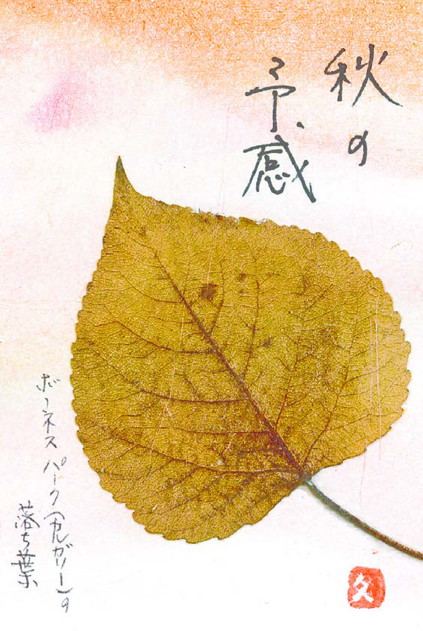 秋の
予感
ボーネス パーク(カルガリー)の
落ち葉
久